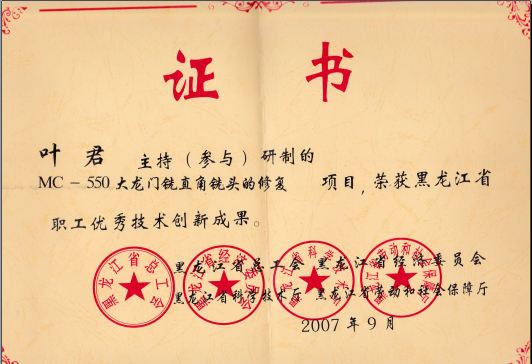 证 书
叶 君 主持（参与）研制的
MC－550大龙门铣直角铣头的修复 项目，荣获黑龙江省
职工优秀技术创新成果。
黑龙江省总工会 黑龙江省经济委员会
黑龙江省科学技术厅 黑龙江省劳动和社会保障厅
2007年9月
黑龙江省总工会